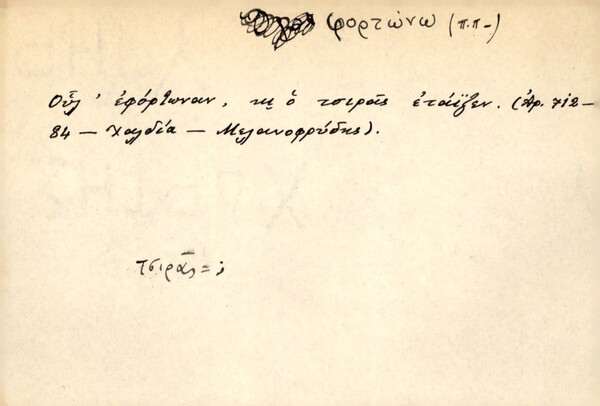 φορτώνω (π.π-)
Οὗλ' ἐφόρτωναν, κι ὁ τσιρᾶς ἐτάϊζεν. (Ἀρ. 712-
84 — Χαλδία — Μελανοφρύδης).
τσιρᾶς = ;